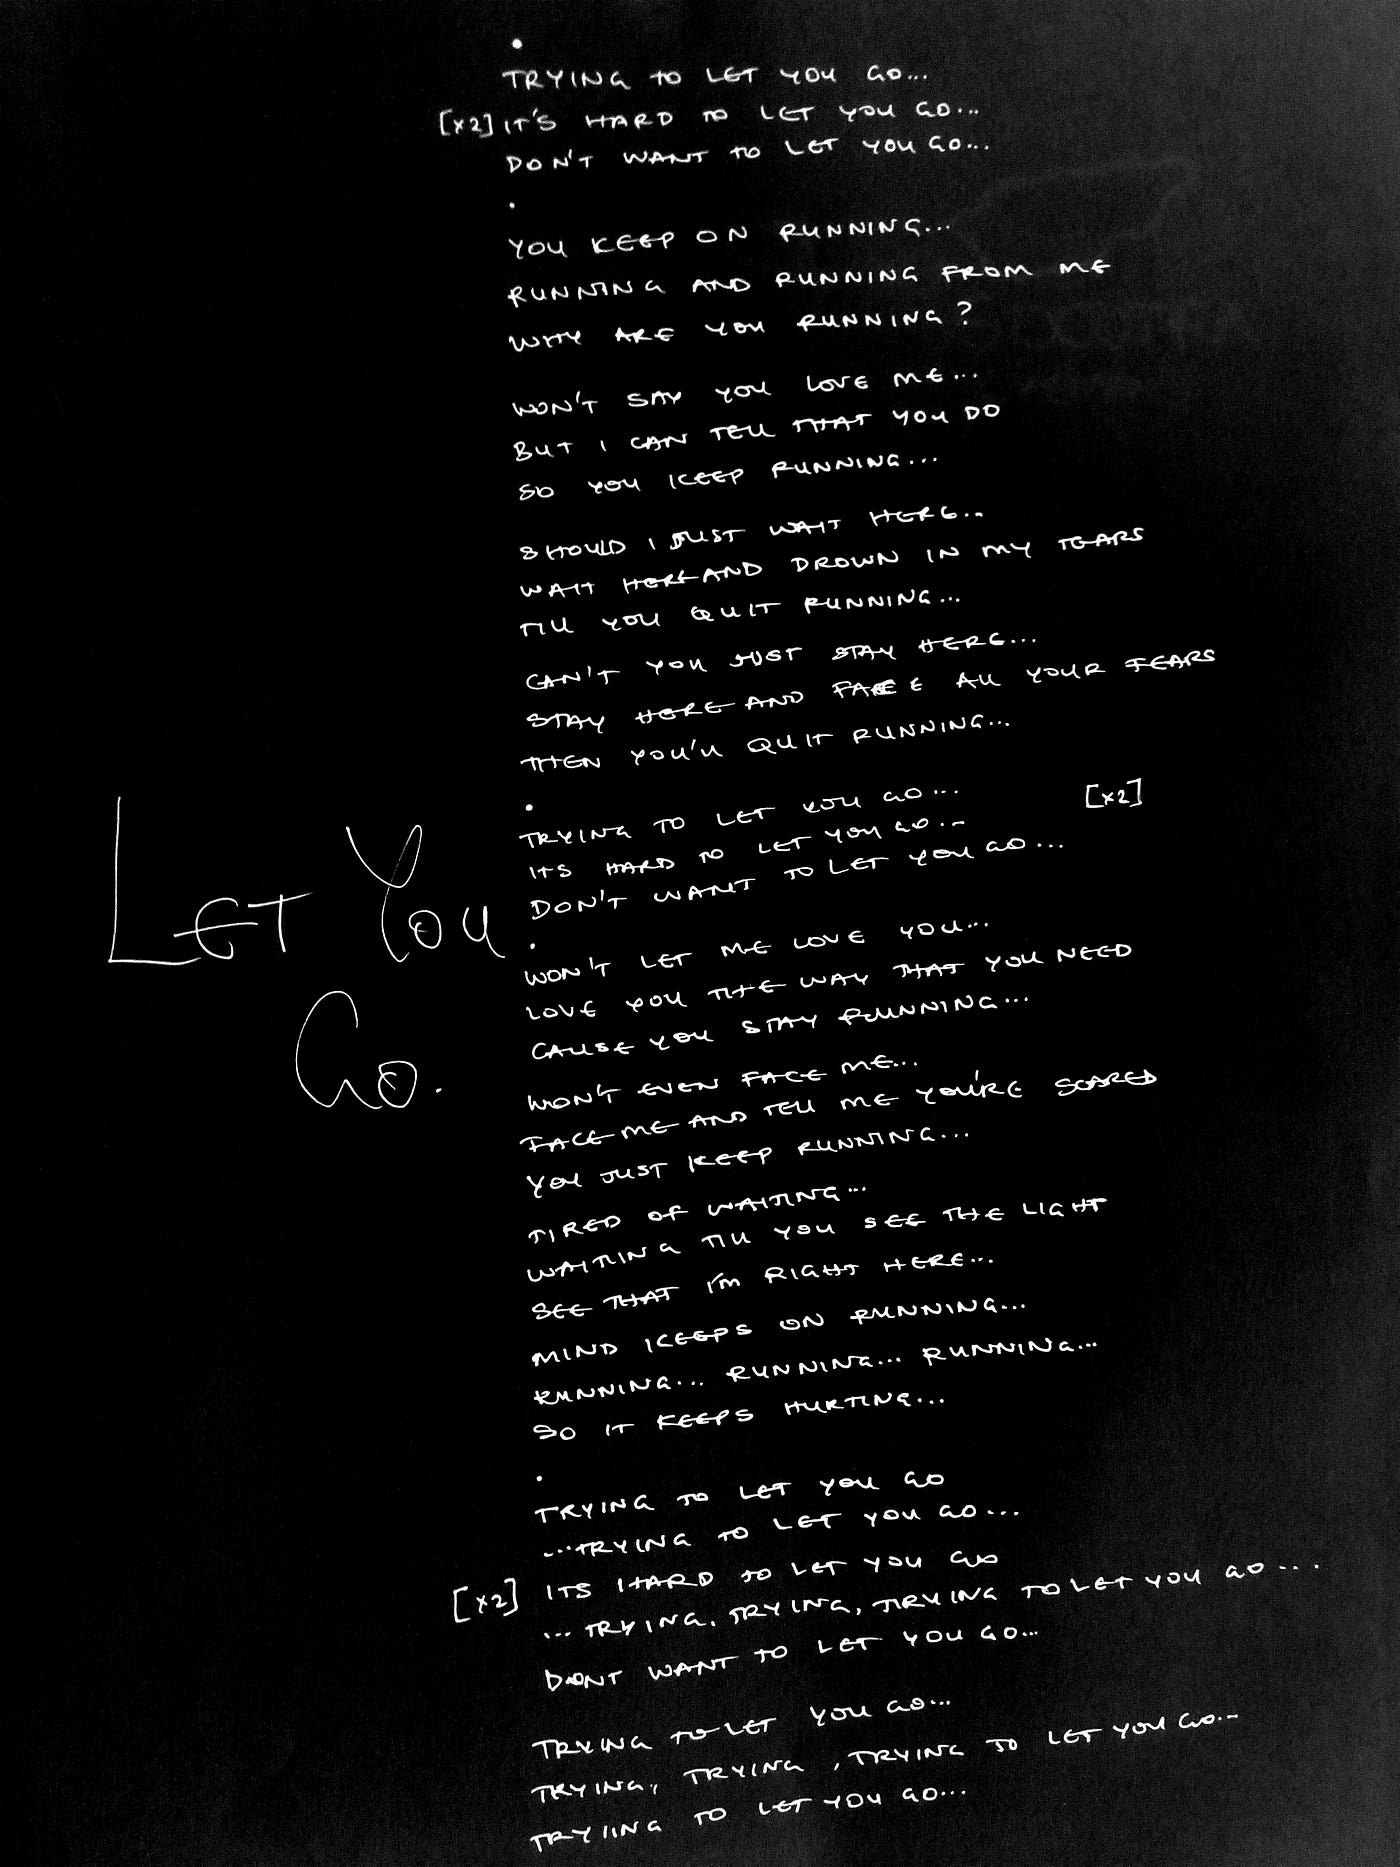 .
TRYING TO LET YOU GO...
[x2] IT'S HARD TO LET YOU GO...
DON'T WANT TO LET YOU GO...
.
YOU KEEP ON RUNNING...
RUNNING AND RUNNING FROM ME
WHY ARE YOU RUNNING?
WON'T SAY YOU LOVE ME...
BUT I CAN TELL THAT YOU DO
SO YOU KEEP RUNNING...
SHOULD I JUST WAIT HERE...
WAIT HERE AND DROWN IN MY TEARS
TILL YOU QUIT RUNNING...
CAN'T YOU JUST STAY HERE...
STAY HERE AND FACE ALL YOUR FEARS
THEN YOU'LL QUIT RUNNING...
.
TRYING TO LET YOU GO... [x2]
ITS HARD TO LET YOU GO...
DON'T WANT TO LET YOU GO...
.
LET YOU
GO.
WON'T LET ME LOVE YOU...
LOVE YOU THE WAY THAT YOU NEED
CAUSE YOU STAY RUNNING...
WON'T EVEN FACE ME...
FACE ME AND TELL ME YOU'RE SCARED
YOU JUST KEEP RUNNING...
TIRED OF WAITING...
WAITING TILL YOU SEE THE LIGHT
SEE THAT I'M RIGHT HERE...
MIND KEEPS ON RUNNING...
RUNNING... RUNNING... RUNNING...
SO IT KEEPS HURTING...
.
TRYING TO LET YOU GO
...TRYING TO LET YOU GO...
[x2] ITS HARD TO LET YOU GO
... TRYING, TRYING, TRYING TO LET YOU GO....
DONT WANT TO LET YOU GO...
TRYING TO LET YOU GO...
TRYING, TRYING, TRYING TO LET YOU GO...
TRYIING TO LET YOU GO...